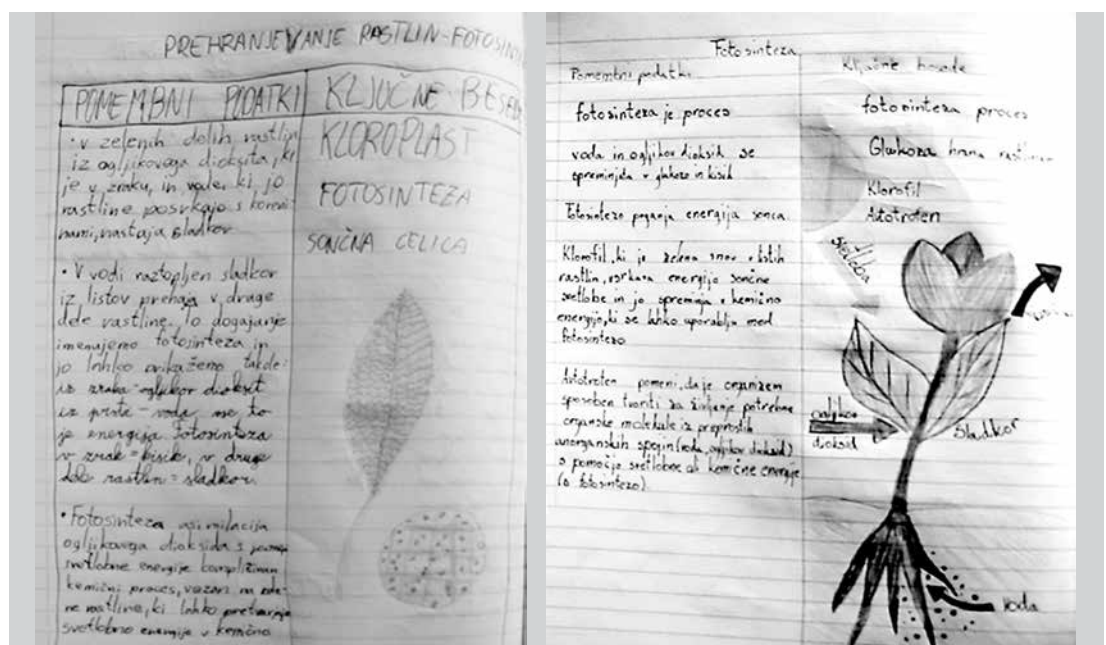 PREHRANJEVANJE RASTLIN-FOTOSIN
POMEMBNI PODATKI
• v zelenih delih rastlin
iz ogljikovega dioksita, ki
je v zraku, in vode, ki, jo
rastline posrkajo s koreni-
nami, nastaja sladkor
• V vodi raztopljen sladkor
iz listov prehaja v druge
dele rastline. To dogajanje
imenujemo fotosinteza in
jo lahko prikažemo takole:
iz zraka = ogljikov dioksit
iz prsti = voda, vse to
je energija. Fotosinteza
v zrak = kisik, v druge
dele rastlin = sladkor.
• Fotosinteza asimilacija
ogljikovega dioksida s
svetlobne energije kompliciran
kemični proces, vezan na zele-
ne rastline, ki lahko pretvarja
svetlobno energijo v kemično
KLJUČNE BESED
KLOROPLAST
FOTOSINTEZA
SONČNA CELICA
Fotosinteza
Pomembni podatki
fotosinteza je proces
voda in ogljikov dioksid se
spreminjata v glukozo in kisik
Fotosintezo poganja energija sonca.
Klorofil, ki je zelena snov v listih
rastlin, vsrkava energijo sončne
svetlobe in jo spreminja v kemično
energijo, ki se lahko uporablja med
fotosintezo
Avtotrofen pomeni, da je organizem
sposoben tvoriti za življenje potrebne
organske molekule iz preprostih
anorganskih spojin (voda, ogljikov dioksid)
s pomočjo svetlobne ali kemične energije
(s fotosintezo).
Ključne besede
fotosinteza proces
Glukoza hrana rastlinam
Klorofil
Avtotrofen
svetloba
ogljikov
dioksid
Sladkor
voda